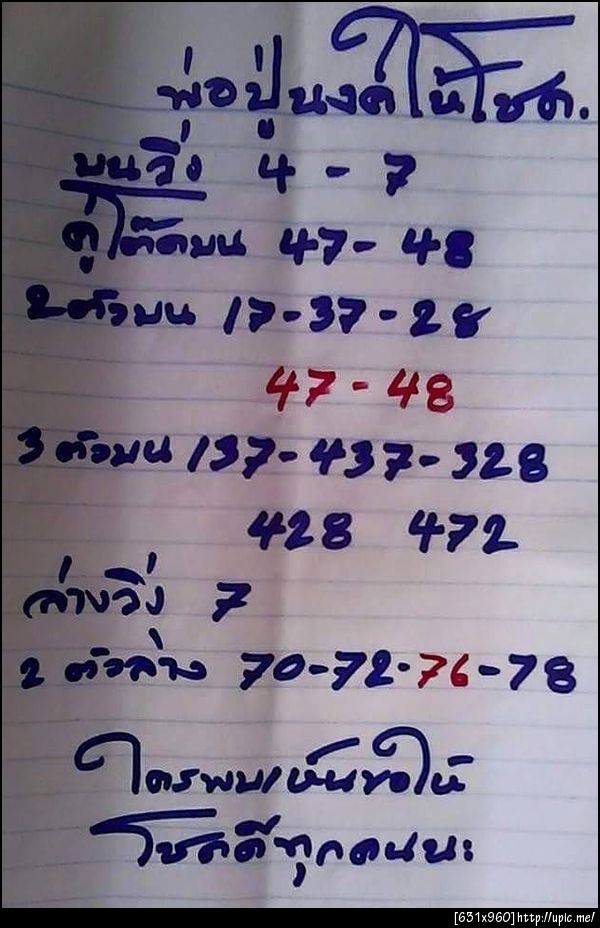 พ่อปู่นงค์ให้โชค.
บนวิ่ง 4 - 7
คู่โต๊ดบน 47 - 48
2 ตัวบน 17 - 37 - 28
47 - 48
3 ตัวบน 137 - 437 - 328
428 472
ล่างวิ่ง 7
2 ตัวล่าง 70 - 72 - 76 - 78
ใครพบเห็นขอให้
โชคดีทุกคนนะ
[651x960]http://upic.me/